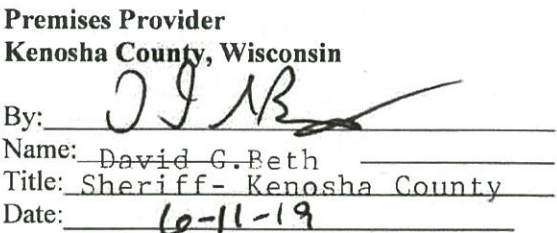 Premises Provider
Kenosha County, Wisconsin
By:
Name: David G.Beth
Title: Sheriff- Kenosha County
Date: 6-11-19